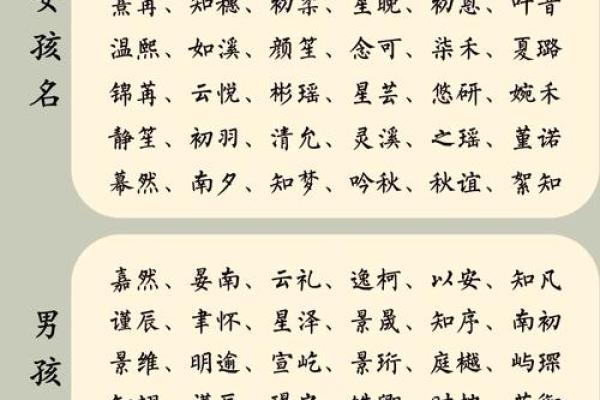 女孩名
熹苒、知穗、初柔、星晚、初恩、叶音
温熙、如溪、颜笙、念可、柒禾、夏璐
锦苒、云悦、彬瑶、星芸、悠研、婉禾
静笙、初羽、清允、灵溪、之瑶、堇诺
蓦然、南夕、知梦、吟秋、秋谊、絮知
男孩
嘉然、晏南、云礼、逸柯、以安、知凡
谨辰、聿怀、星泽、景晟、知序、南初
景维、明逾、宣屹、景珩、庭樾、屿琛